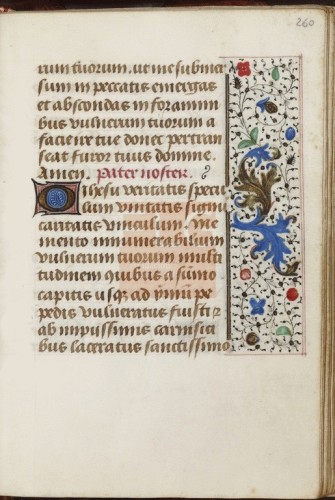 260
rum tuorum. ut me submer
sum in peccatis emergas
et abscondas in foramini
bus vulnerum tuorum a
facie ire tue donec pertran
seat furor tuus domine.
Amen. Pater noster.
O Ihesu veritatis specu
lum vnitatis signū
caritatis vinculum. Me
mento innumerabilium
vulnerum tuorum multi
tudinem quibus a sūmo
capitis usqꝫ ad ymū pe
pedis vulneratus fuisti ⁊
ab impiissimis carnifici
bus laceratus sanctissimo